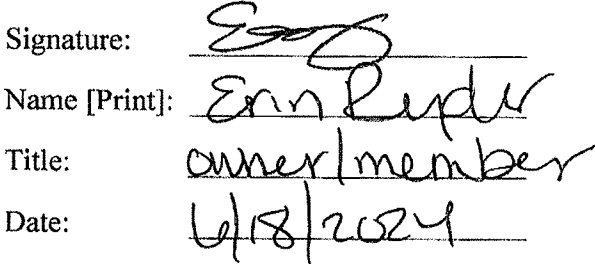 Signature:
Name [Print]: Erin Ryder
Title: owner/member
Date: 6/18/2024